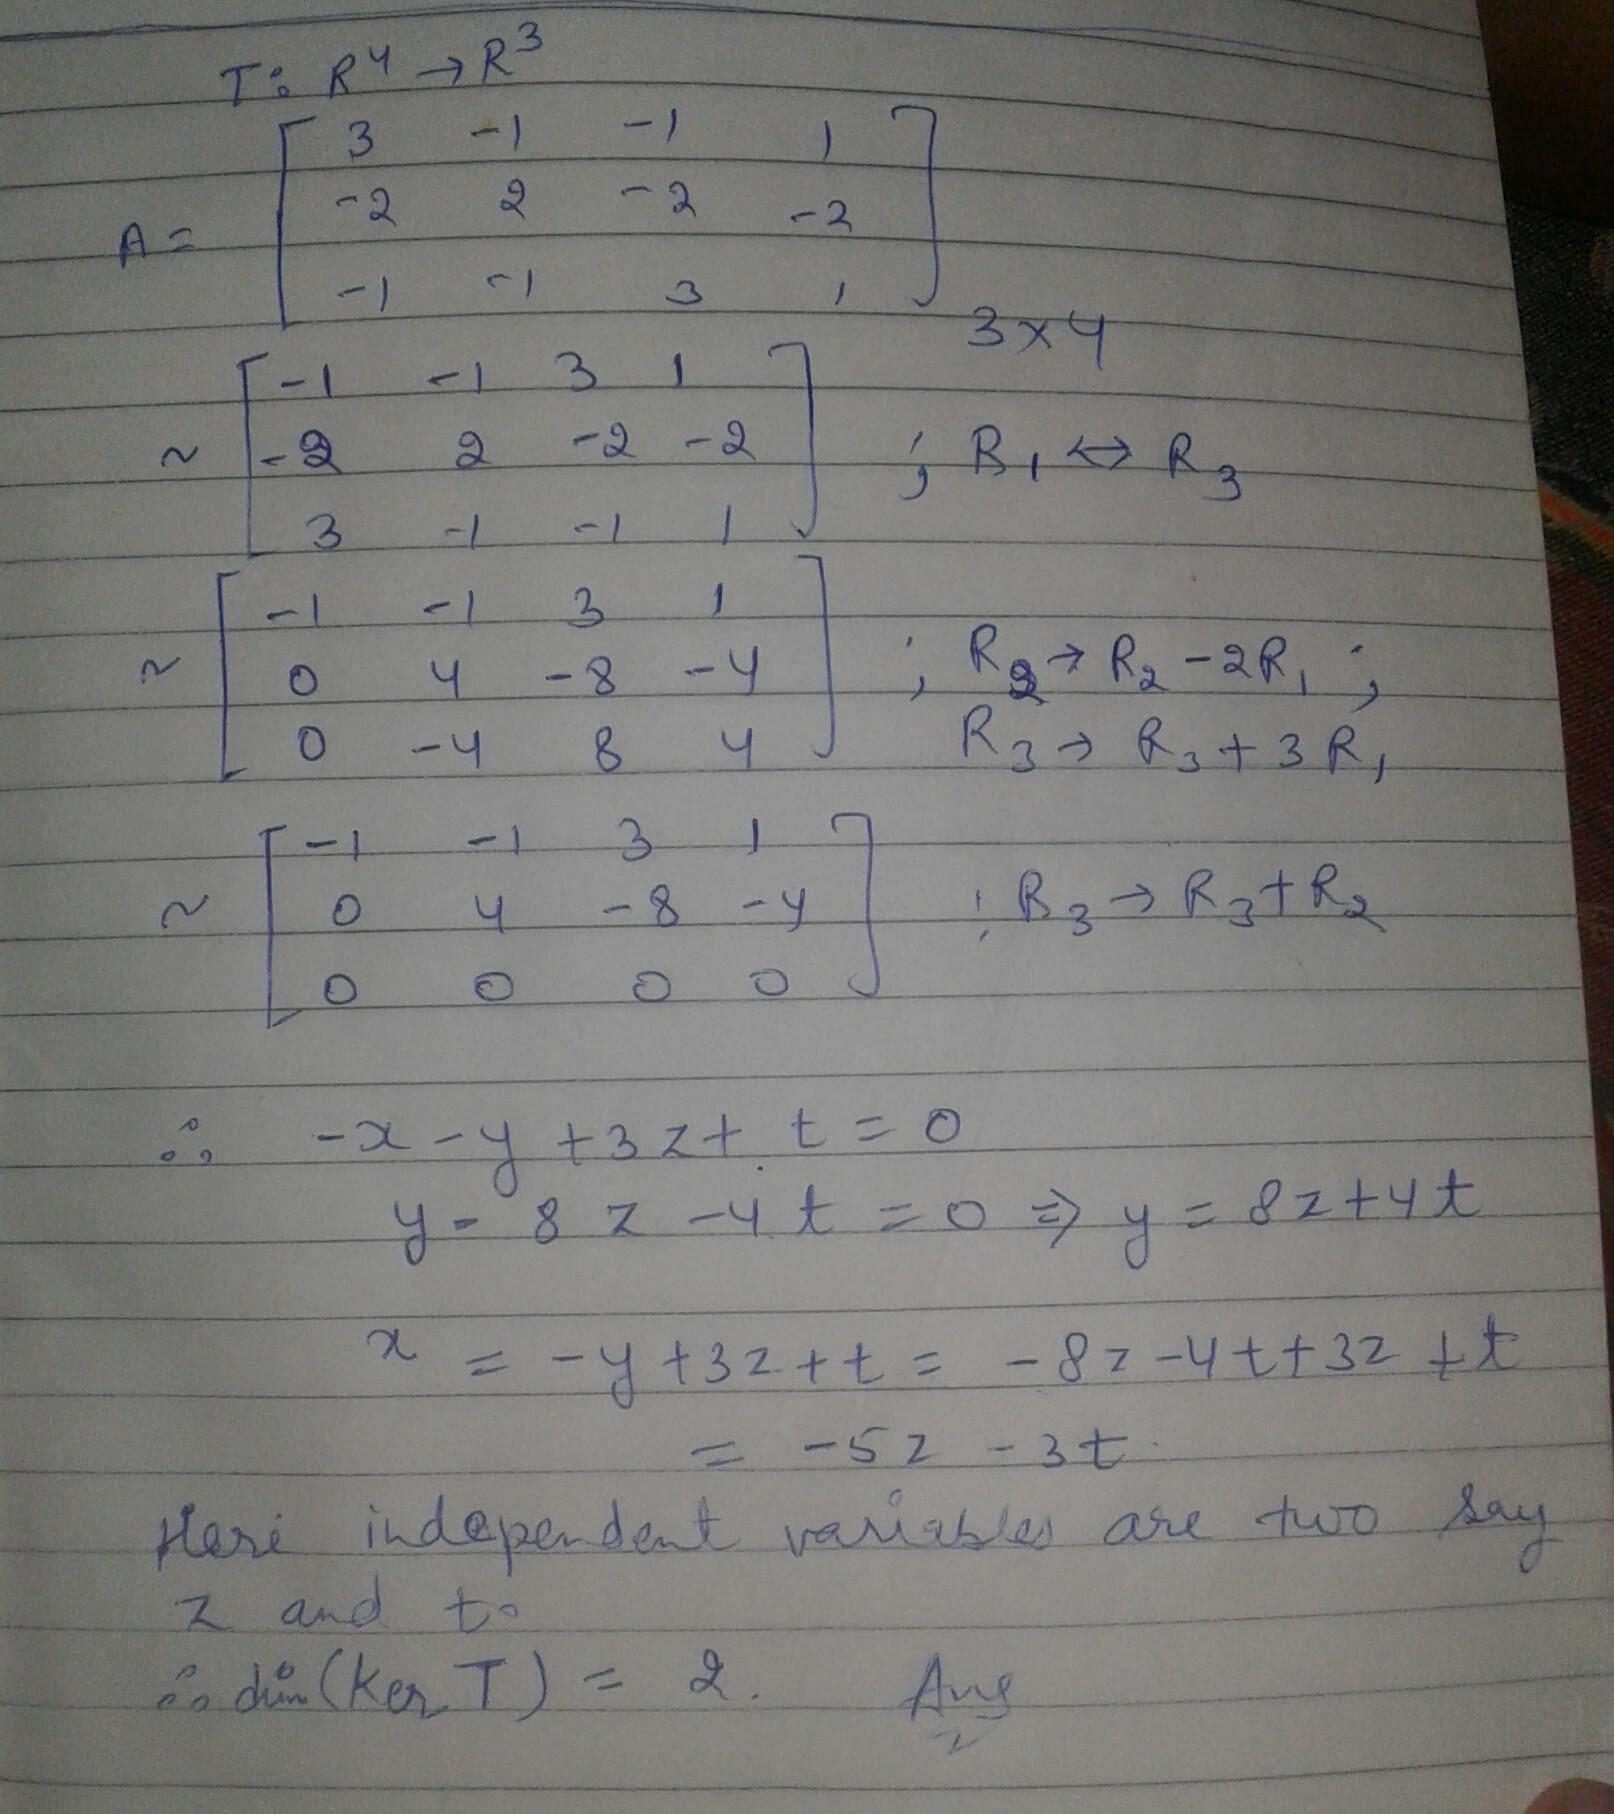 T: R⁴ → R³
A = [ 3 -1 -1 1
-2 2 -2 -2
-1 -1 3 1 ] 3×4
~ [ -1 -1 3 1
-2 2 -2 -2 ; R₁ ↔ R₃
3 -1 -1 1 ]
~ [ -1 -1 3 1
0 4 -8 -4 ; R₂ → R₂ - 2R₁ ;
0 -4 8 4 ] R₃ → R₃ + 3R₁
~ [ -1 -1 3 1
0 4 -8 -4 ; R₃ → R₃ + R₂
0 0 0 0 ]
∴ -x - y + 3z + t = 0
y - 8z - 4t = 0 ⇒ y = 8z + 4t
x = -y + 3z + t = -8z - 4t + 3z + t
= -5z - 3t
Here independent variables are two say
z and t.
∴ dim (Ker T) = 2. Ans